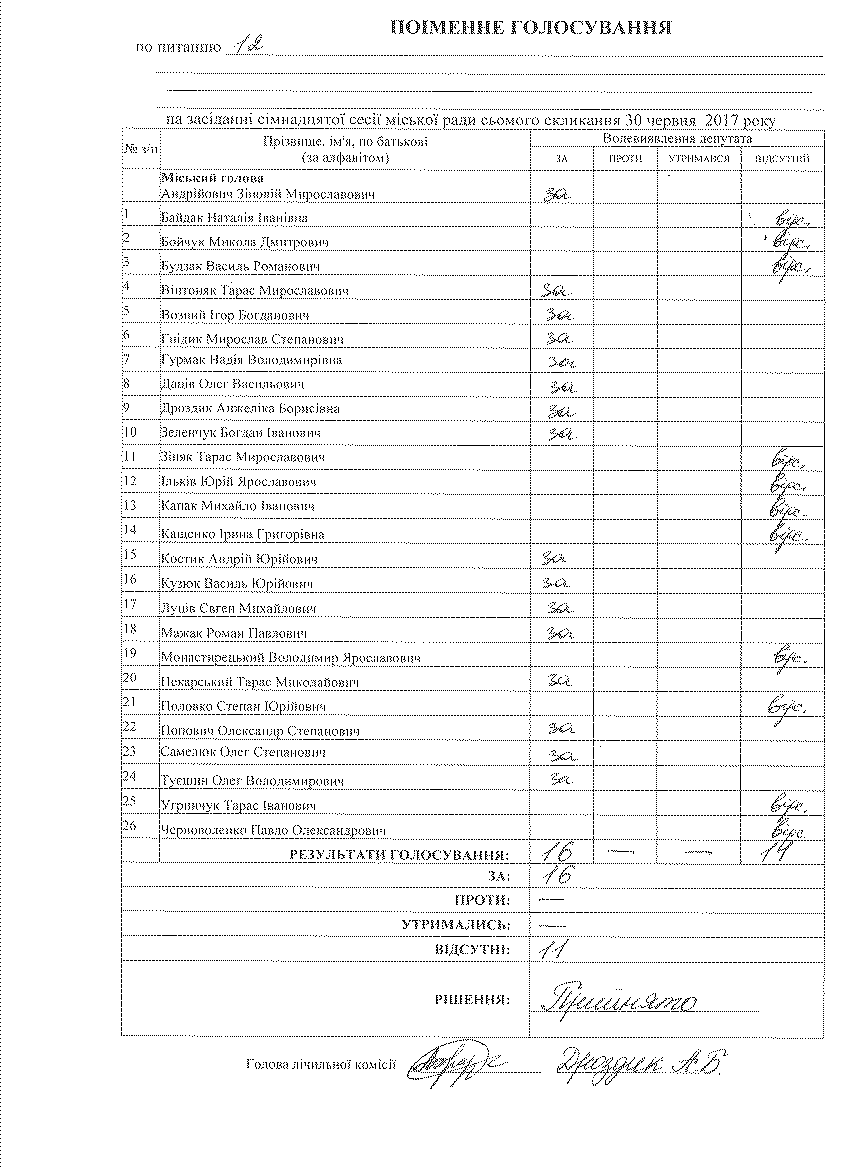 ПОІМЕННЕ ГОЛОСУВАННЯ
по питанню 12
на засіданні сімнадцятої сесії міської ради сьомого скликання 30 червня 2017 року
№ з/п Прізвище, ім'я, по батькові (за алфавітом) Волевиявлення депутата
ЗА ПРОТИ УТРИМАВСЯ ВІДСУТНІЙ
Міський голова
Андрійович Зіновій Мирославович за
1 Байдак Наталія Іванівна відс.
2 Бойчук Микола Дмитрович відс.
3 Будзак Василь Романович відс.
4 Вінтоняк Тарас Мирославович за
5 Возний Ігор Богданович за
6 Гнідик Мирослав Степанович за
7 Гурмак Надія Володимирівна за
8 Даців Олег Васильович за
9 Дроздик Анжеліка Борисівна за
10 Зеленчук Богдан Іванович за
11 Зіняк Тарас Мирославович відс.
12 Ільків Юрій Ярославович відс.
13 Капак Михайло Іванович відс.
14 Кащенко Ірина Григорівна відс.
15 Костик Андрій Юрійович за
16 Кузюк Василь Юрійович за
17 Луців Євген Михайлович за
18 Мажак Роман Павлович за
19 Монастирецький Володимир Ярославович відс.
20 Пекарський Тарас Миколайович за
21 Половко Степан Юрійович відс.
22 Попович Олександр Степанович за
23 Самелюк Олег Степанович за
24 Туєшин Олег Володимирович за
25 Угринчук Тарас Іванович відс.
26 Черноволенко Павло Олександрович відс.
РЕЗУЛЬТАТИ ГОЛОСУВАННЯ: 16 — — 11
ЗА: 16
ПРОТИ: —
УТРИМАЛИСЬ: —
ВІДСУТНІ: 11
РІШЕННЯ: Прийнято
Голова лічильної комісії Дроздик А.Б.